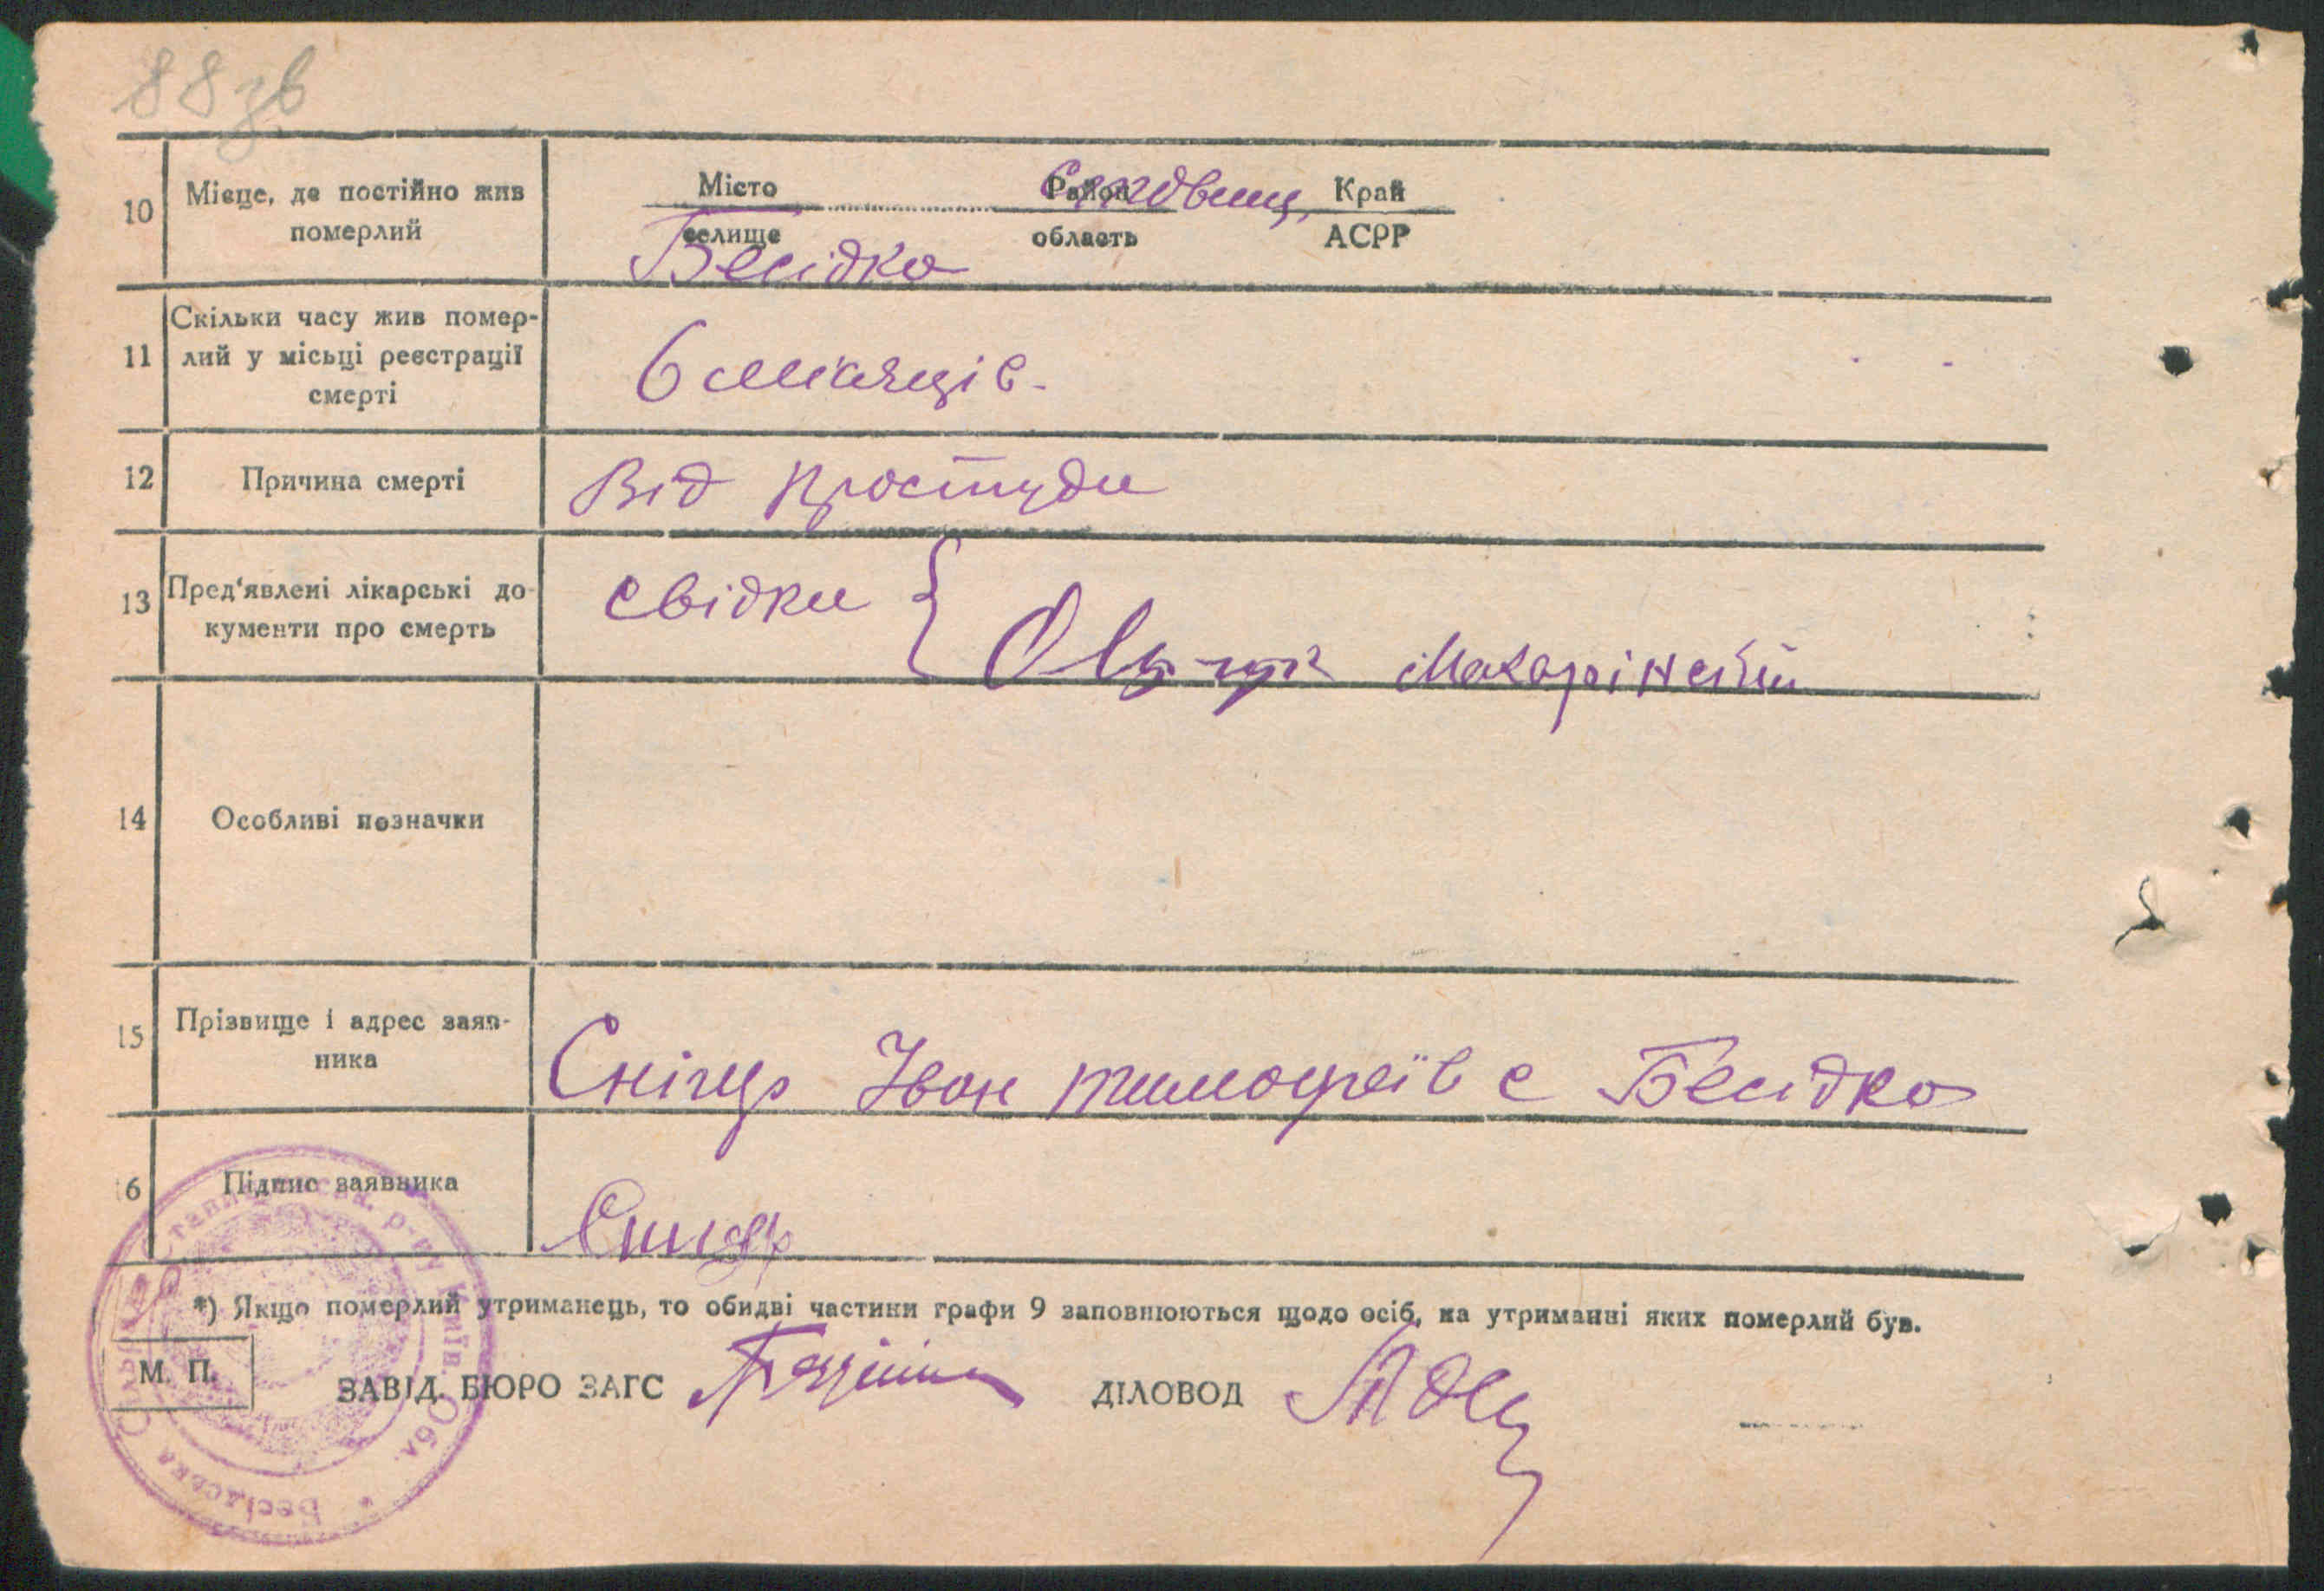 88 зв
10 Місце, де постійно жив померлий
Місто Район Край
селище область АСРР
Бесідка
11 Скільки часу жив помер-
лий у місьці реєстрації
смерті
6 місяців.
12 Причина смерті Від простуди
13 Пред'явлені лікарські до-
кументи про смерть
свідки {
14 Особливі позначки
15 Прізвище і адрес заяв-
ника
Іван тимофеїв с Бесідка
16 Підпис заявника
*) Якщо померлий утриманець, то обидві частини графи 9 заповнюються щодо осіб, на утриманні яких померлий був.
М. П.
ЗАВІД. БЮРО ЗАГС ДІЛОВОД